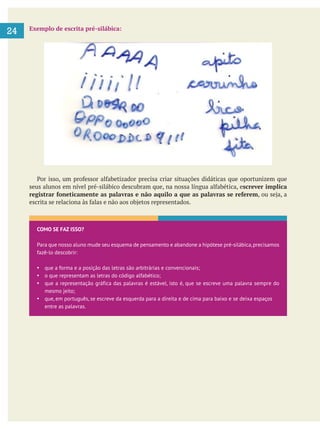 24
Exemplo de escrita pré-silábica:
AAAAA apito
iiiii!! carrinho
bico
pilha
fita
Por isso, um professor alfabetizador precisa criar situações didáticas que oportunizem que
seus alunos em nível pré-silábico descubram que, na nossa língua alfabética, escrever implica
registrar foneticamente as palavras e não aquilo a que as palavras se referem, ou seja, a
escrita se relaciona às falas e não aos objetos representados.
COMO SE FAZ ISSO?
Para que nosso aluno mude seu esquema de pensamento e abandone a hipótese pré-silábica, precisamos
fazê-lo descobrir:
• que a forma e a posição das letras são arbitrárias e convencionais;
• o que representam as letras do código alfabético;
• que a representação gráfica das palavras é estável, isto é, que se escreve uma palavra sempre do
mesmo jeito;
• que, em português, se escreve da esquerda para a direita e de cima para baixo e se deixa espaços
entre as palavras.